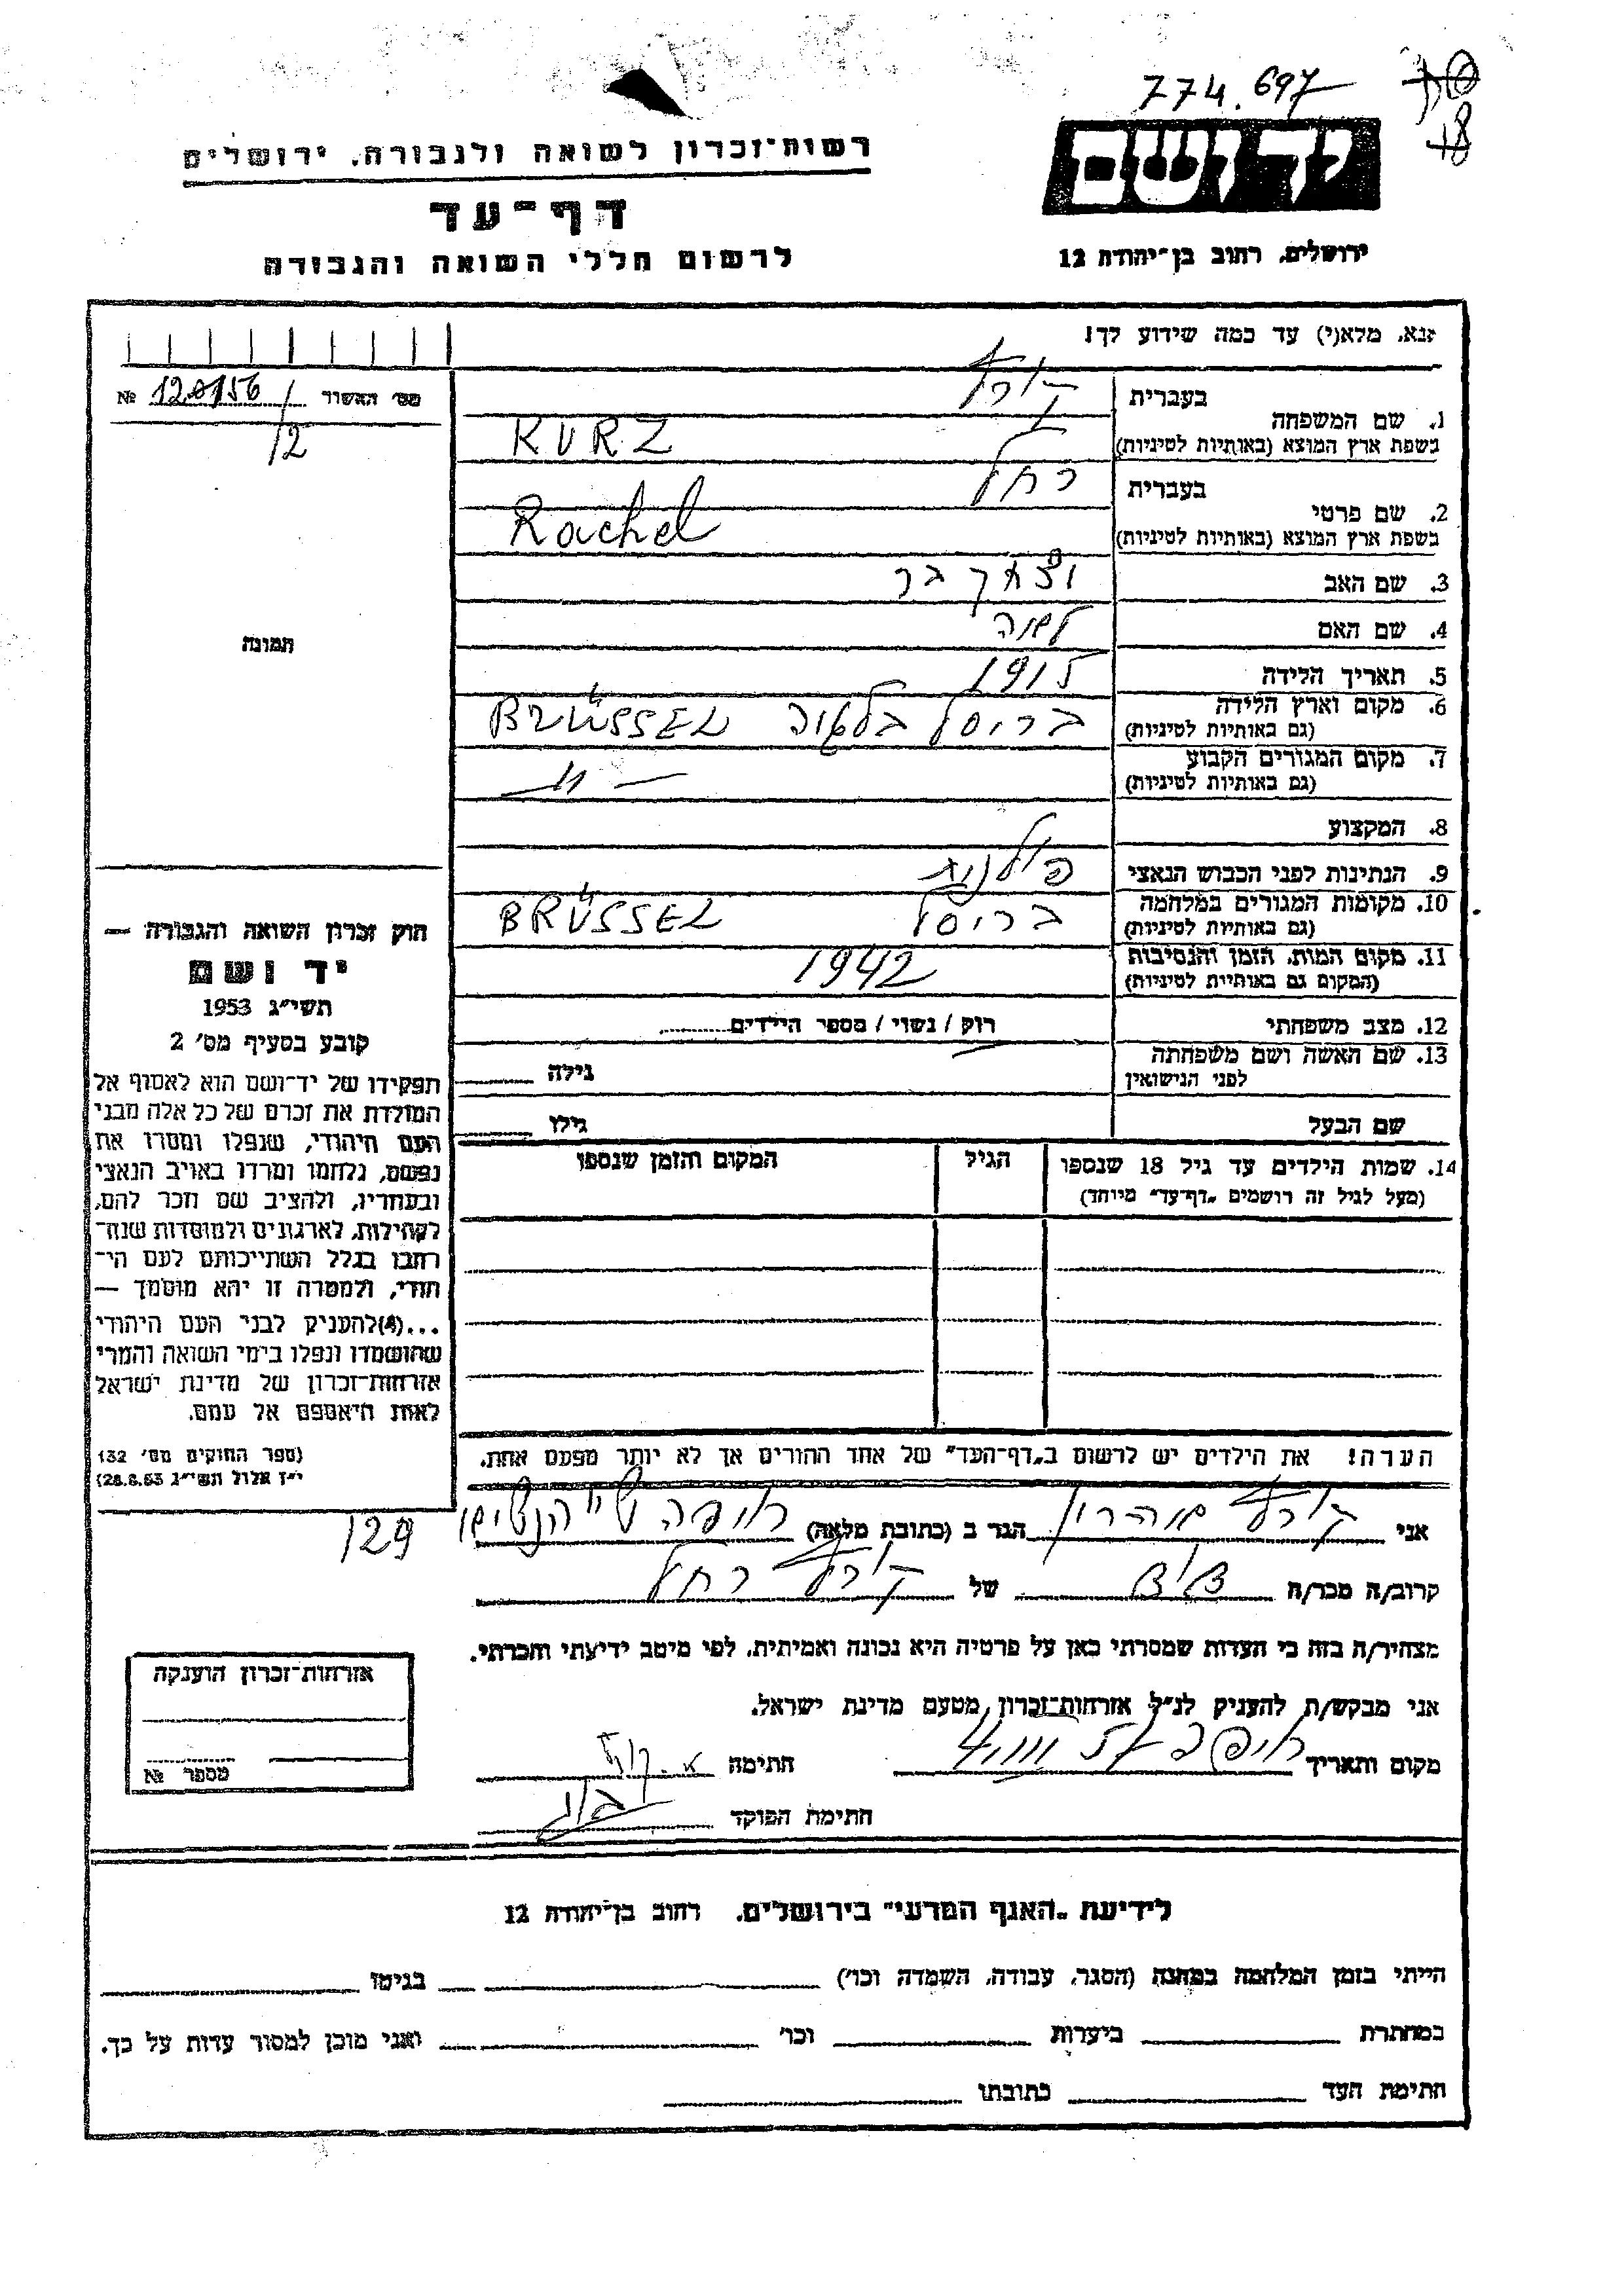 774.697
רשות־זכרון לשואה ולגבורה, ירושלים
יד ושם
דף־עד
לרשום חללי השואה והגבורה
ירושלים, רחוב בן־יהודה 12
אנא, מלא(י) עד כמה שידוע לך!
מס' האשור № 120156
12
1. שם המשפחה
בעברית קורץ
בשפת ארץ המוצא (באותיות לטיניות) KURZ
2. שם פרטי
בעברית רחל
בשפת ארץ המוצא (באותיות לטיניות) Rachel
3. שם האב יצחק
4. שם האם
תמונה
5. תאריך הלידה 1915
6. מקום וארץ הלידה ברוסל בלגיה BRÜSSEL
(גם באותיות לטיניות)
7. מקום המגורים הקבוע — " —
(גם באותיות לטיניות)
8. המקצוע
9. הנתינות לפני הכבוש הנאצי פולנית
10. מקומות המגורים במלחמה ברוסל BRÜSSEL
(גם באותיות לטיניות)
11. מקום המות, הזמן והנסיבות 1942
(המקום גם באותיות לטיניות)
12. מצב משפחתי רוק / נשוי / מספר הילדים
13. שם האשה ושם משפחתה גילה
לפני הנישואין
שם הבעל גילו
14. שמות הילדים עד גיל 18 שנספו הגיל המקום והזמן שנספו
(מעל לגיל זה רושמים „דף־עד" מיוחד)
חוק זכרון השואה והגבורה —
יד ושם
תשי"ג 1953
קובע בסעיף מס' 2
תפקידו של יד־ושם הוא לאסוף אל
המולדת את זכרם של כל אלה מבני
העם היהודי, שנפלו ומסרו את
נפשם, נלחמו ומרדו באויב הנאצי
ובעוזריו, ולהציב שם וזכר להם,
לקהילות, לארגונים ולמוסדות שנח־
רבו בגלל השתייכותם לעם הי־
הודי, ולמטרה זו יהא מוסמך —
...(4) להעניק לבני העם היהודי
שהושמדו ונפלו בימי השואה והמרי
אזרחות־זכרון של מדינת ישראל
לאות היאספם אל עמם.
(ספר החוקים מס' 132
י"ז אלול תשי"ג 28.8.53)
הערה! את הילדים יש לרשום ב„דף־העד" של אחד ההורים אך לא יותר מפעם אחת.
אני קורץ אהרון הגר ב (כתובת מלאה) חיפה
129
קרוב/ה מכר/ה של קורץ רחל
מצהיר/ה בזה כי העדות שמסרתי כאן על פרטיה היא נכונה ואמיתית, לפי מיטב ידיעתי והכרתי.
אני מבקש/ת להעניק לנ"ל אזרחות־זכרון מטעם מדינת ישראל.
מקום ותאריך חיפה חתימה א. קורץ
חתימת הפוקד
אזרחות־זכרון הוענקה
מספר №
לידיעת „האגף המדעי" בירושלים, רחוב בן־יהודה 12
הייתי בזמן המלחמה במחנה (הסגר, עבודה, השמדה וכו') בגיטו
במחתרת ביערות וכו' ואני מוכן למסור עדות על כך.
חתימת העד כתובתו